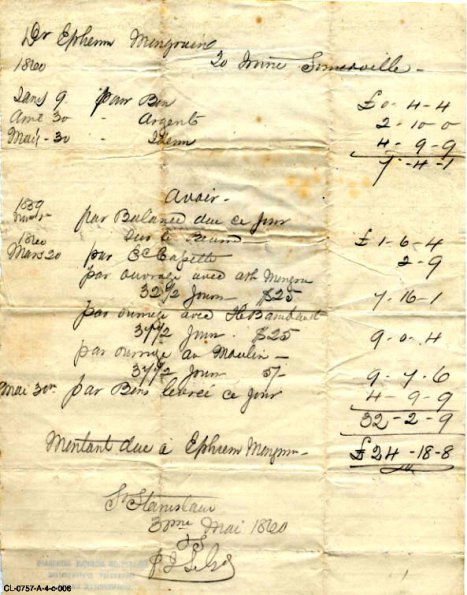 Dr Ephrem Mongrain
To Irvine Somerville -
1860
Janv 9 pour Bon £0 - 4 - 4
30 " Argent 2 - 10 - 0
Mai - 30 - Idem 4 - 9 - 9
7 - 4 - 1
Avoir -
1859
par Balance due ce Jour
Sur le £1 - 6 - 4
1860
Mars 20 par 2 - 9
par ouvrage avec
32 1/2 Jours - $25 7 - 16 - 1
par ouvrage avec
37 1/2 Jours . $25 9 - 0 - 4
par ouvrage au Moulin -
37 1/2 Jours 5/- 9 - 7 - 6
Mai 30 par Bois ce Jour 4 - 9 - 9
32 - 2 - 9
Montant due à Ephrem Mongrain - £24 - 18 - 8
St Stanislas
30me Mai 1860
CL-0757-A-4-c-006